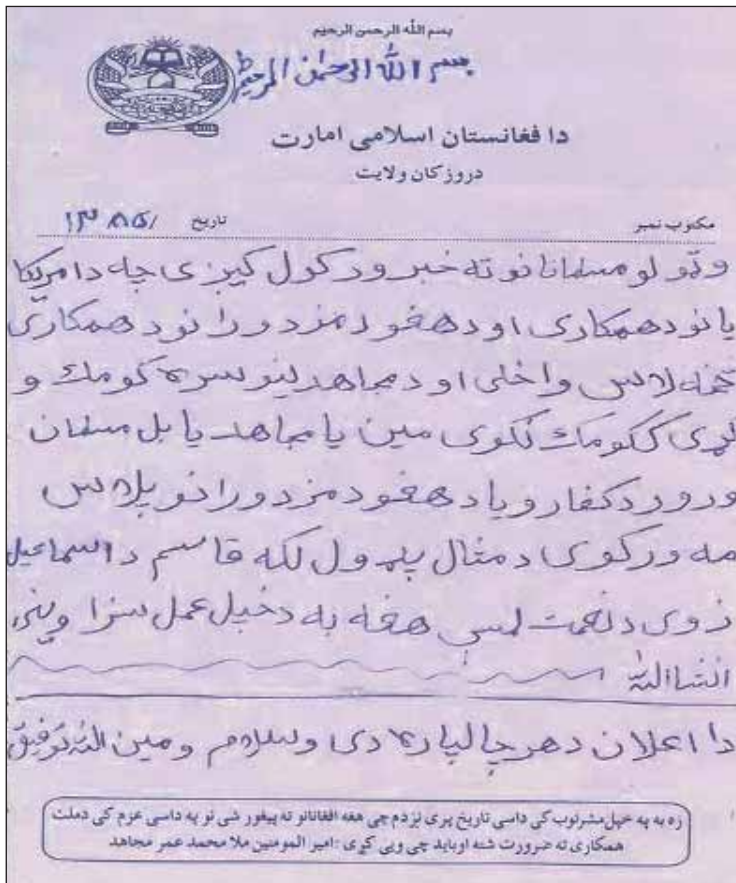 بسم الله الرحمن الرحيم
بسم الله الرحمٰن الرحیم
دا فغانستان اسلامی امارت
دروزکان ولایت
مکتوب نمبر تاریخ ۱۳۸۵/
وټولو مسلمانانو ته خبر ورکول کیږی چه دامریکا
یانو دهمکاری او دهغو دمزدورانو دهمکاری
څخه لاس واخلی او دمجاهدینو سره کومک و
کړی ککومک نکوی مین یا مجاهد یا بل مسلمان
ورور دکفارو یا دهغو دمزدورانو پلاس
مه ورکوی دمثال پډول لکه قاسم داسماعیل
زوی دنعمت لمسی هغه به دخپل عمل سزا وینی
انشاالله
دا اعلان دهر چا لپاره دی وسلام ومین الله توفیق
زه به په خپل مشرتوب کی داسی تاریخ پری نږدم چی هغه افغانانو ته پیغور شی نو په داسی عزم کی دملت
همکاری ته ضرورت شته اوباید چی ویی کړی : امیر المومنین ملا محمد عمر مجاهد